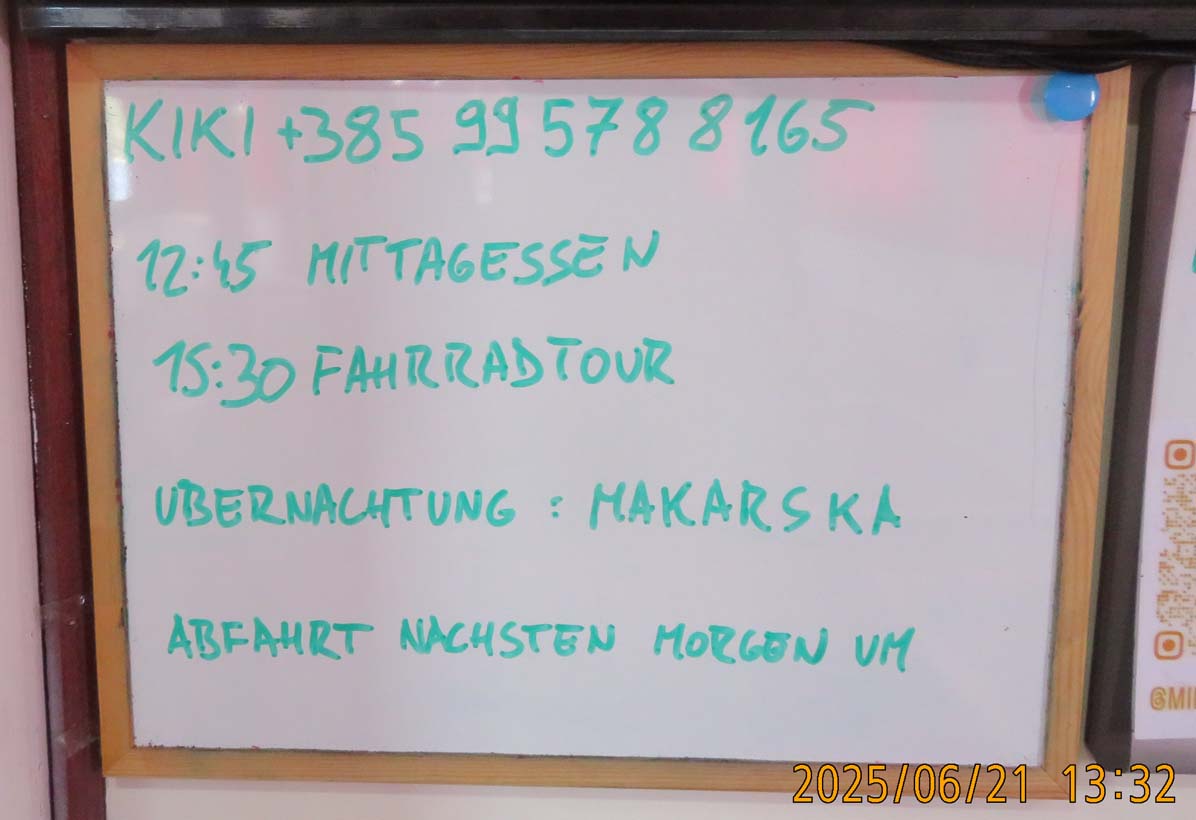 KIKI +385 99 578 8165
12:45 MITTAGESSEN
15:30 FAHRRADTOUR
UBERNACHTUNG : MAKARSKA
ABFAHRT NACHSTEN MORGEN UM
@MI
2025/06/21 13:32